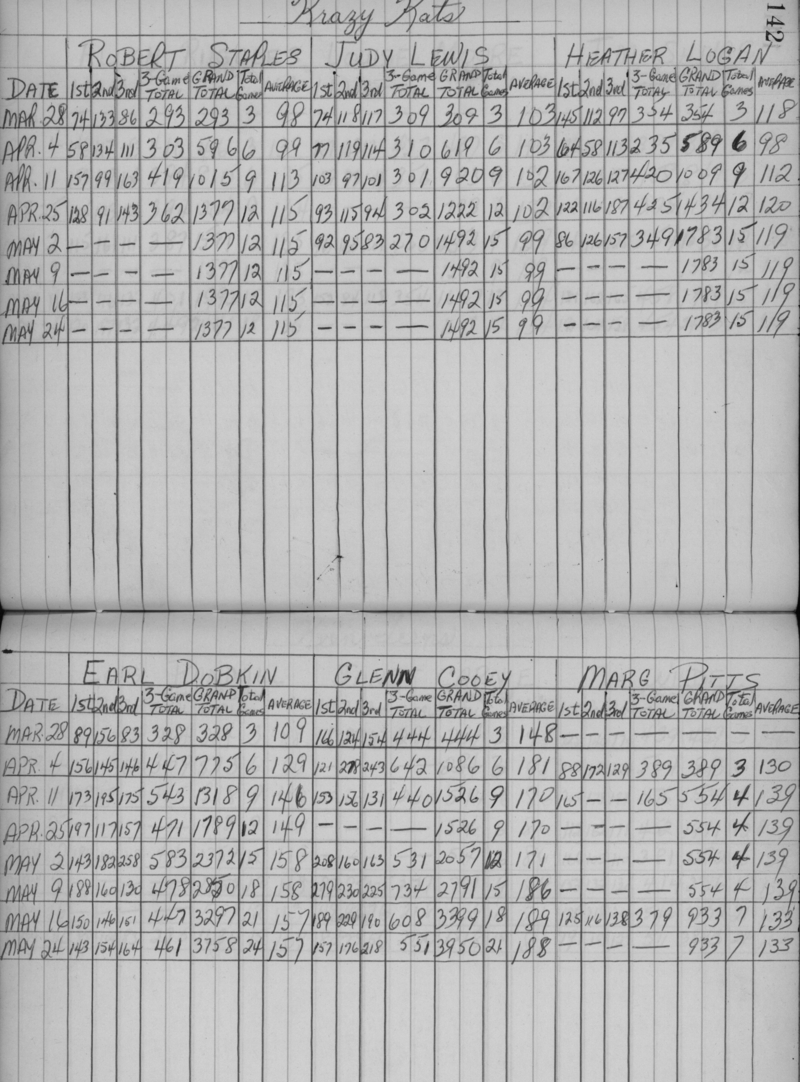 Krazy Kats
142
ROBERT STAPLES JUDY LEWIS HEATHER LOGAN
DATE 1st 2nd 3rd 3-Game TOTAL GRAND TOTAL Total Games AVERAGE 1st 2nd 3rd 3-Game TOTAL GRAND TOTAL Total Games AVERAGE 1st 2nd 3rd 3-Game TOTAL GRAND TOTAL Total Games AVERAGE
MAR 28 74 133 86 293 293 3 98 74 118 117 309 309 3 103 145 112 97 354 354 3 118
APR. 4 58 134 111 303 596 6 99 77 119 114 310 619 6 103 64 58 113 235 589 6 98
APR. 11 157 99 163 419 1015 9 113 103 97 101 301 920 9 102 167 126 127 420 1009 9 112
APR. 25 128 91 143 362 1377 12 115 93 115 94 302 1222 12 102 122 116 187 425 1434 12 120
MAY 2 — — — — 1377 12 115 92 95 83 270 1492 15 99 86 126 157 349 1783 15 119
MAY 9 — — — — 1377 12 115 — — — — 1492 15 99 — — — — 1783 15 119
MAY 16 — — — — 1377 12 115 — — — — 1492 15 99 — — — — 1783 15 119
MAY 24 — — — — 1377 12 115 — — — — 1492 15 99 — — — — 1783 15 119
EARL DOBKIN GLENN COOEY MARG PITTS
DATE 1st 2nd 3rd 3-Game TOTAL GRAND TOTAL Total Games AVERAGE 1st 2nd 3rd 3-Game TOTAL GRAND TOTAL Total Games AVERAGE 1st 2nd 3rd 3-Game TOTAL GRAND TOTAL Total Games AVERAGE
MAR. 28 89 156 83 328 328 3 109 166 124 154 444 444 3 148 — — — — — — —
APR. 4 156 145 146 447 775 6 129 121 278 243 642 1086 6 181 88 172 129 389 389 3 130
APR. 11 173 195 175 543 1318 9 146 153 156 131 440 1526 9 170 165 — — 165 554 4 139
APR. 25 197 117 157 471 1789 12 149 — — — — 1526 9 170 — — — — 554 4 139
MAY 2 143 182 258 583 2372 15 158 208 160 163 531 2057 12 171 — — — — 554 4 139
MAY 9 188 160 130 478 2850 18 158 279 230 225 734 2791 15 186 — — — — 554 4 139
MAY 16 150 146 151 447 3297 21 157 189 229 190 608 3399 18 189 125 116 138 379 933 7 133
MAY 24 143 154 164 461 3758 24 157 157 176 218 551 3950 21 188 — — — — 933 7 133